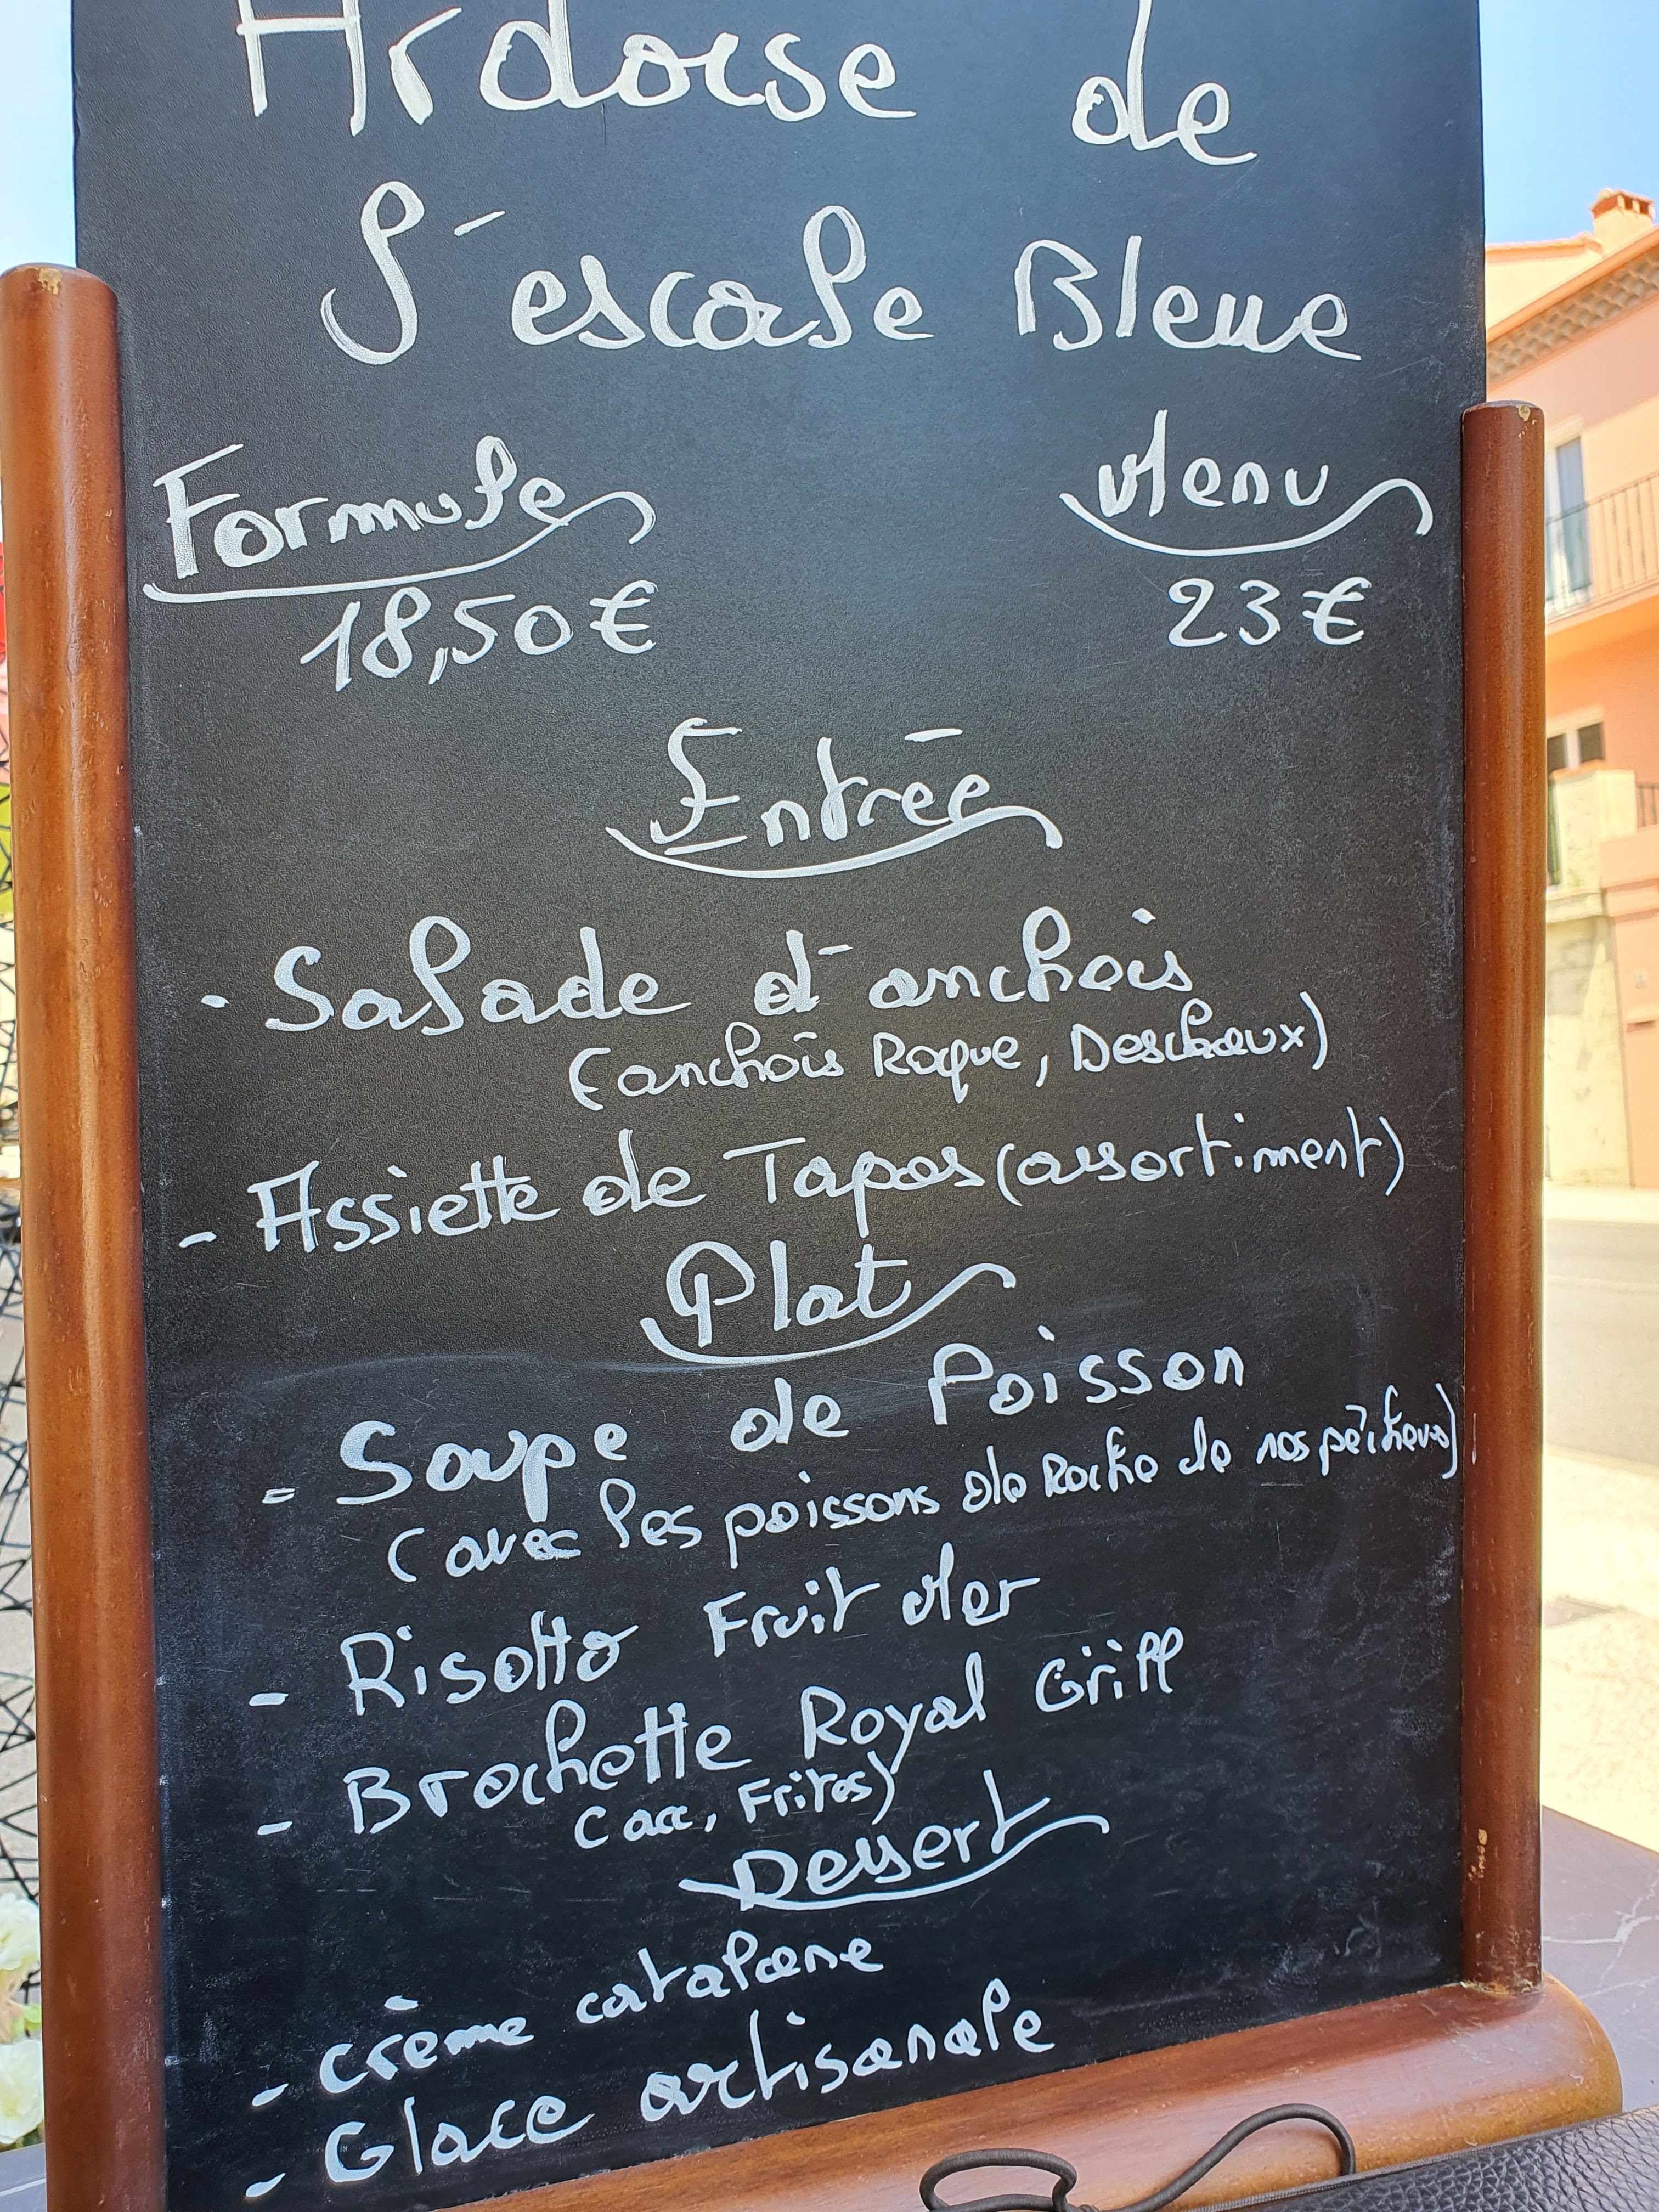 Ardoise de
L'escale Bleue
Formule Menu
18,50€ 23€
Entrée
- Salade d'anchois
(anchois Roque, Deschaux)
- Assiette de Tapas (assortiment)
Plat
- Soupe de Poisson
(avec les poissons de Roche de nos pêcheurs)
- Risotto Fruit Mer
- Brochette Royal Grill
(Frites)
Dessert
- crème catalane
- Glace artisanale